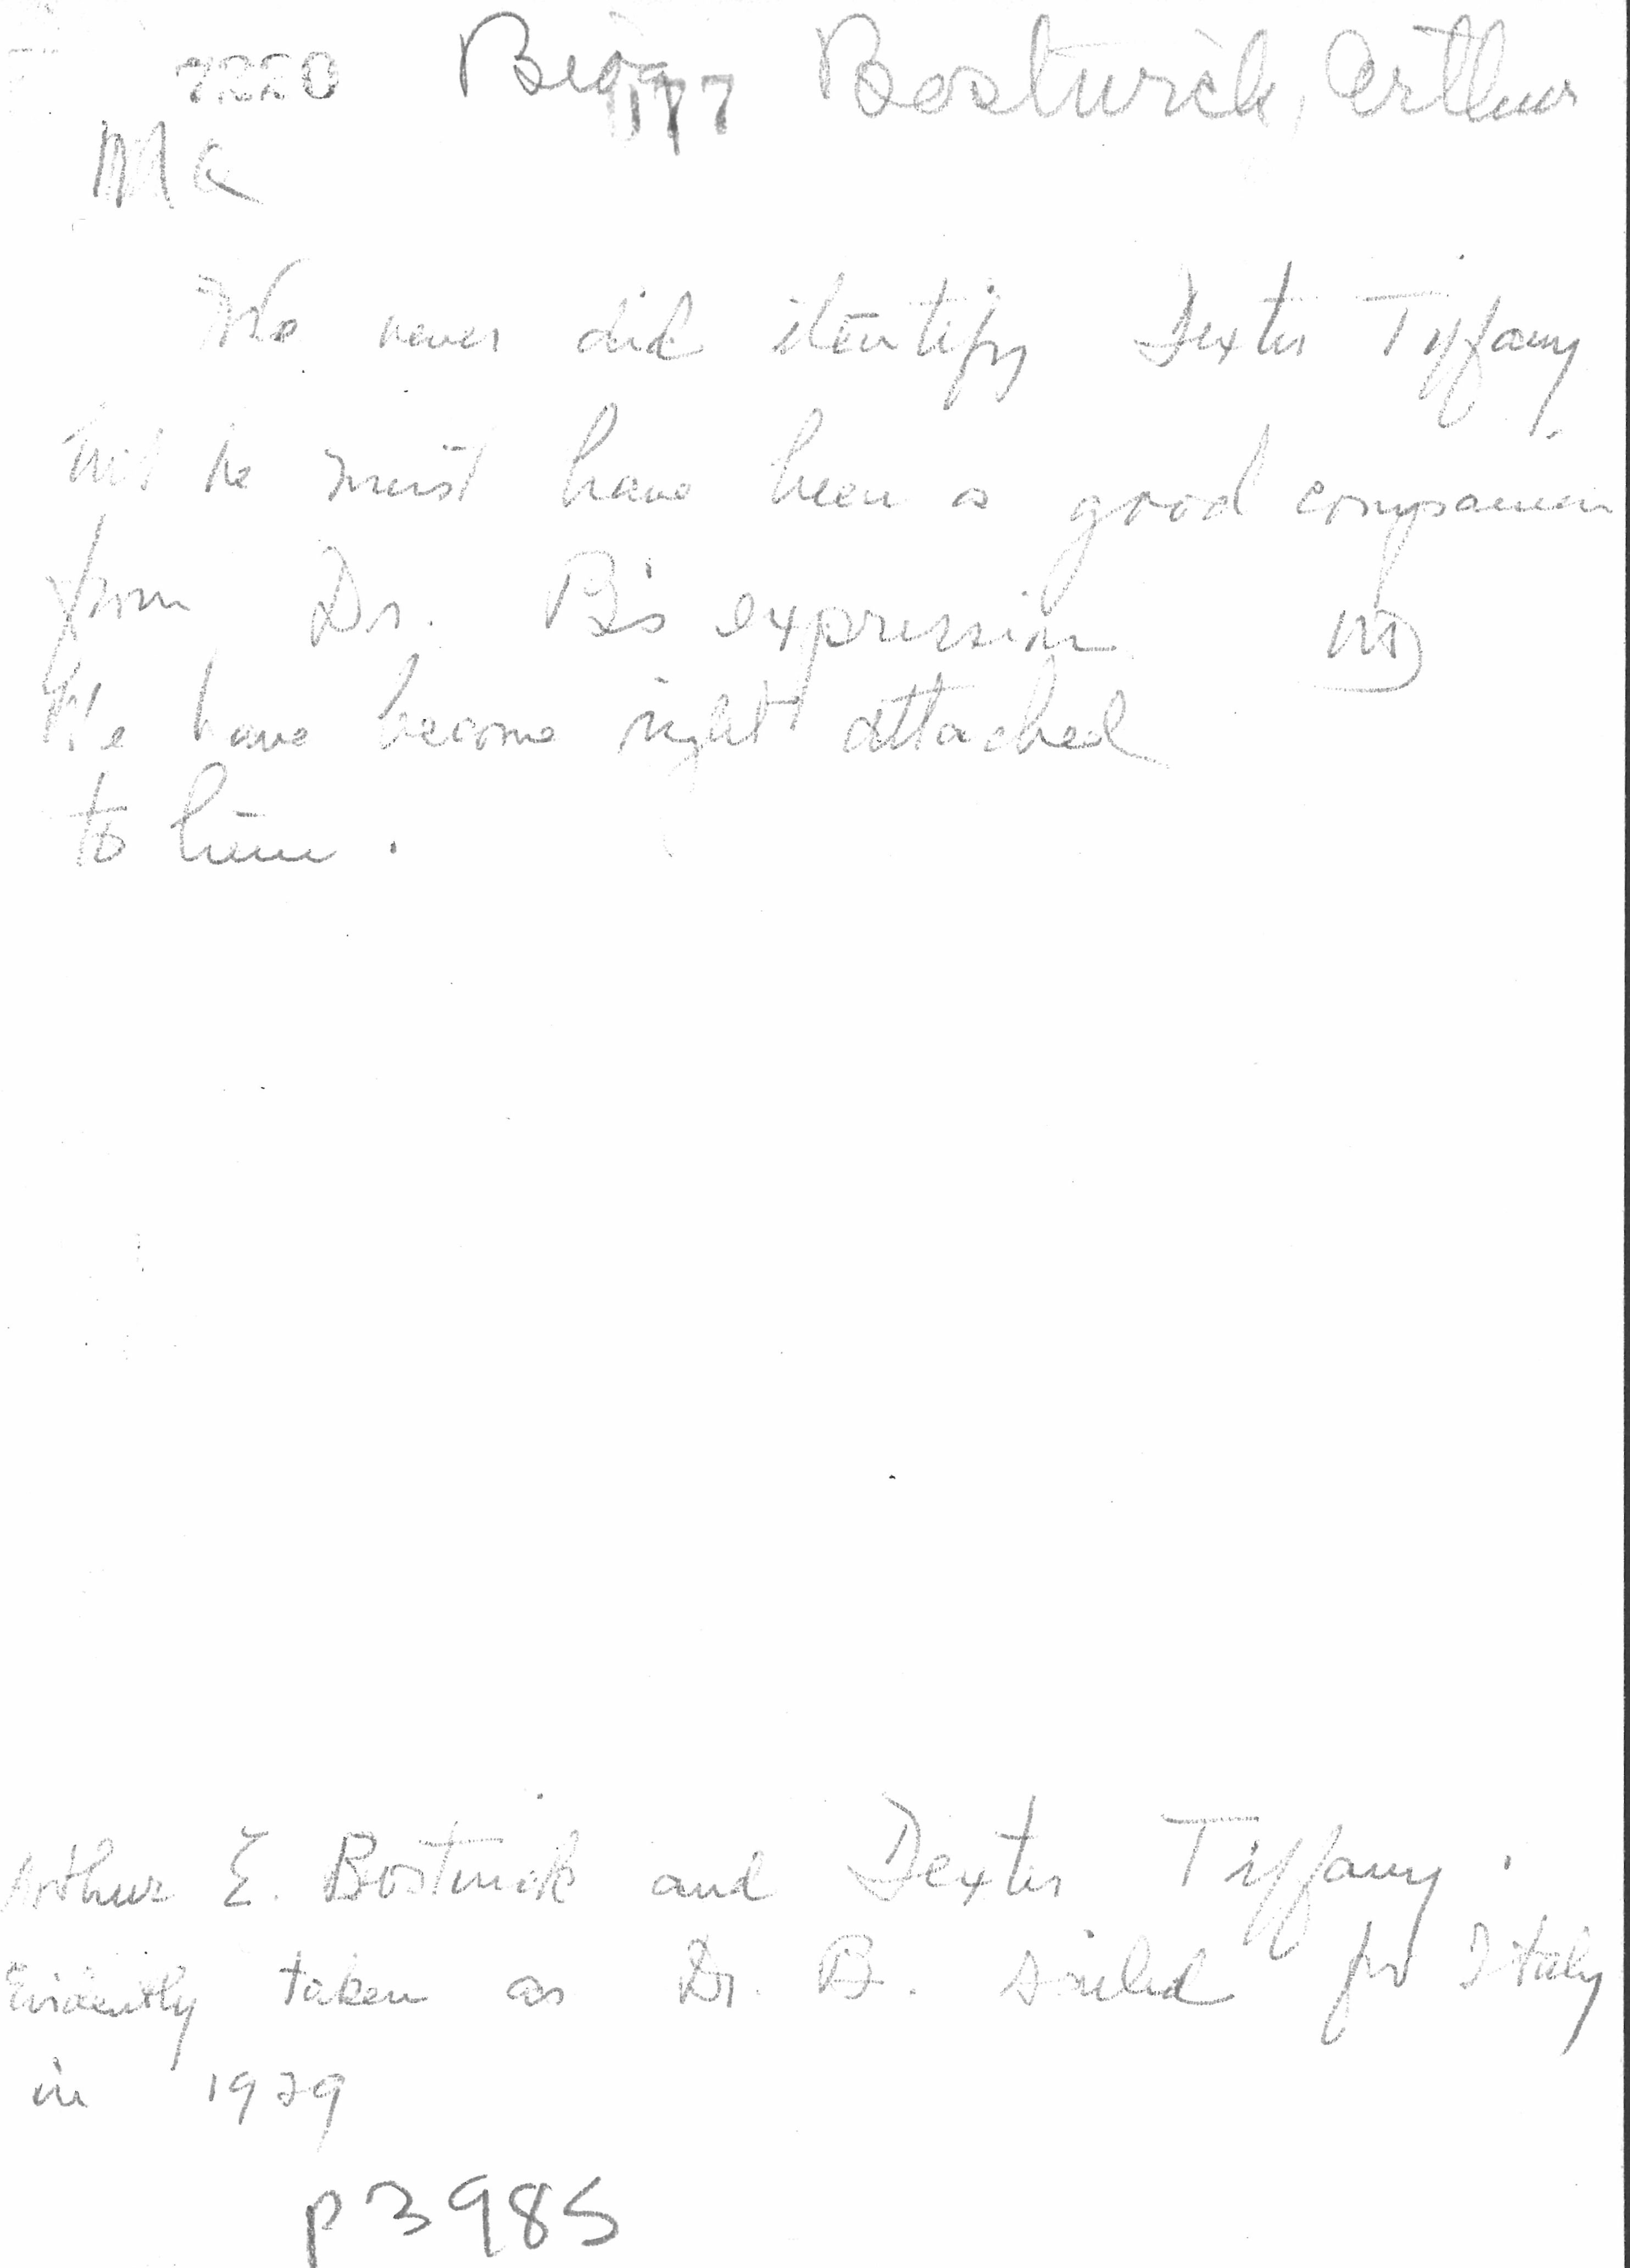 7220 Biog 177 Bostwick, Arthur
MC
We never did identify Dexter Tiffany,
but he must have been a good companion
from Dr. B's expression MD
We have become right attached
to him.
Arthur E. Bostwick and Dexter Tiffany.
Evidently taken as Dr. B. sailed for Italy
in 1929
P3985